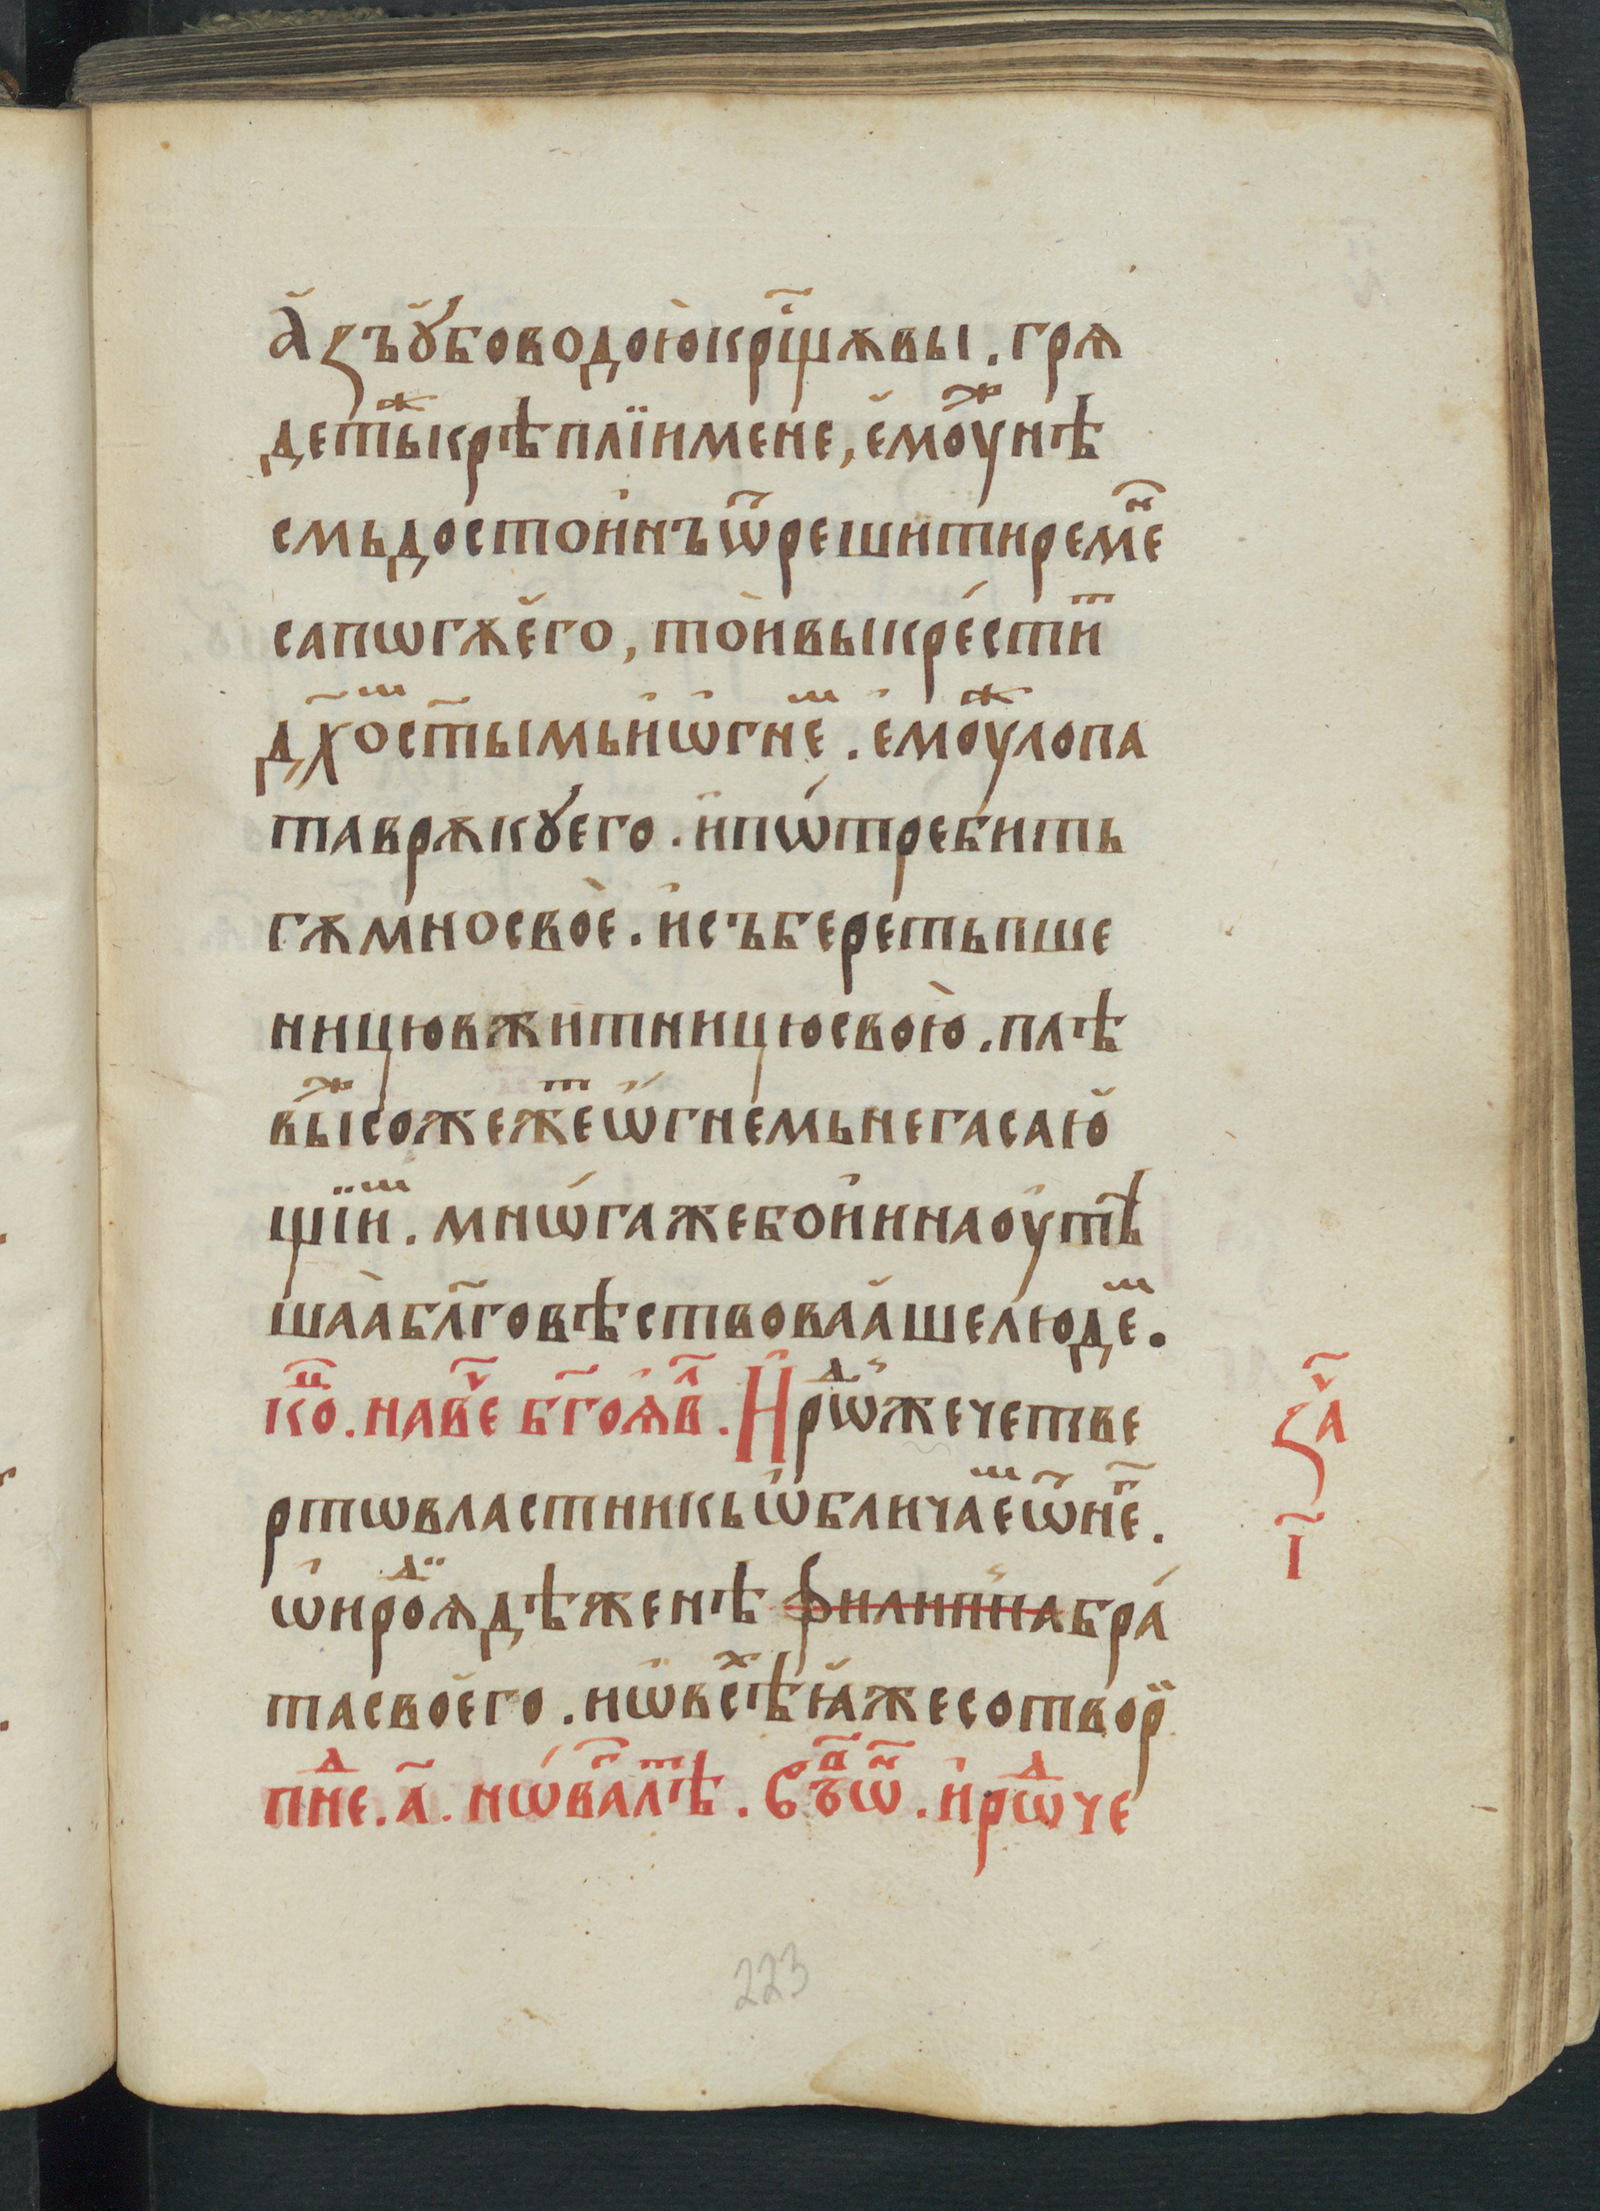 а҆ зъꙋ҆бо водою̀ крⷭ҇щѫ вы . грѧ
детьⷤ крѣплїи мене , є҆моуⷤ нѣ
смь достоинъ ѿрешити ремеⷩ҇
сапѡгѫ є҆го , то̀и вы крести́ⷮ
дх҃оⷨ ст҃ымь и҆ ѡ҆гнеⷨ . є҆моуⷤ лопа
та в рѫкꙋ его . и҆ пѡ́требить
гѫмно своѐ . и҆ съберет пше
ницю в житницю свою̀ . плѣ
выⷤ сожежеⷮ ѡ҆́гнемь негасаю҆
щїиⷨ . мнѡ́га же бо и҆ и҆на оу҆тѣ
шаѧ̀ блг҃овѣствоваа҆ше людеⷨ .
коⷰ . на веⷱ҇ бг҃оѧ҆вⷧ҇ . И҆рѡⷣ же четве
ртѡвластникь ѡ҆бличаеⷨ ѿ неⷢ҇ .
ѡ҆ и҆роⷣїѧдѣ женѣ филипїиа бра́
та своего . и҆ ѡ҆ всѣⷯ ꙗ҆же сотвори
пнеⷣ . а҃ . нѡ́ваⷢ҇ лѣⷮ . Съⷡ҇ ѿⷩ҇ . и҆рѡⷣ че
заⷱ҇
і҃
223